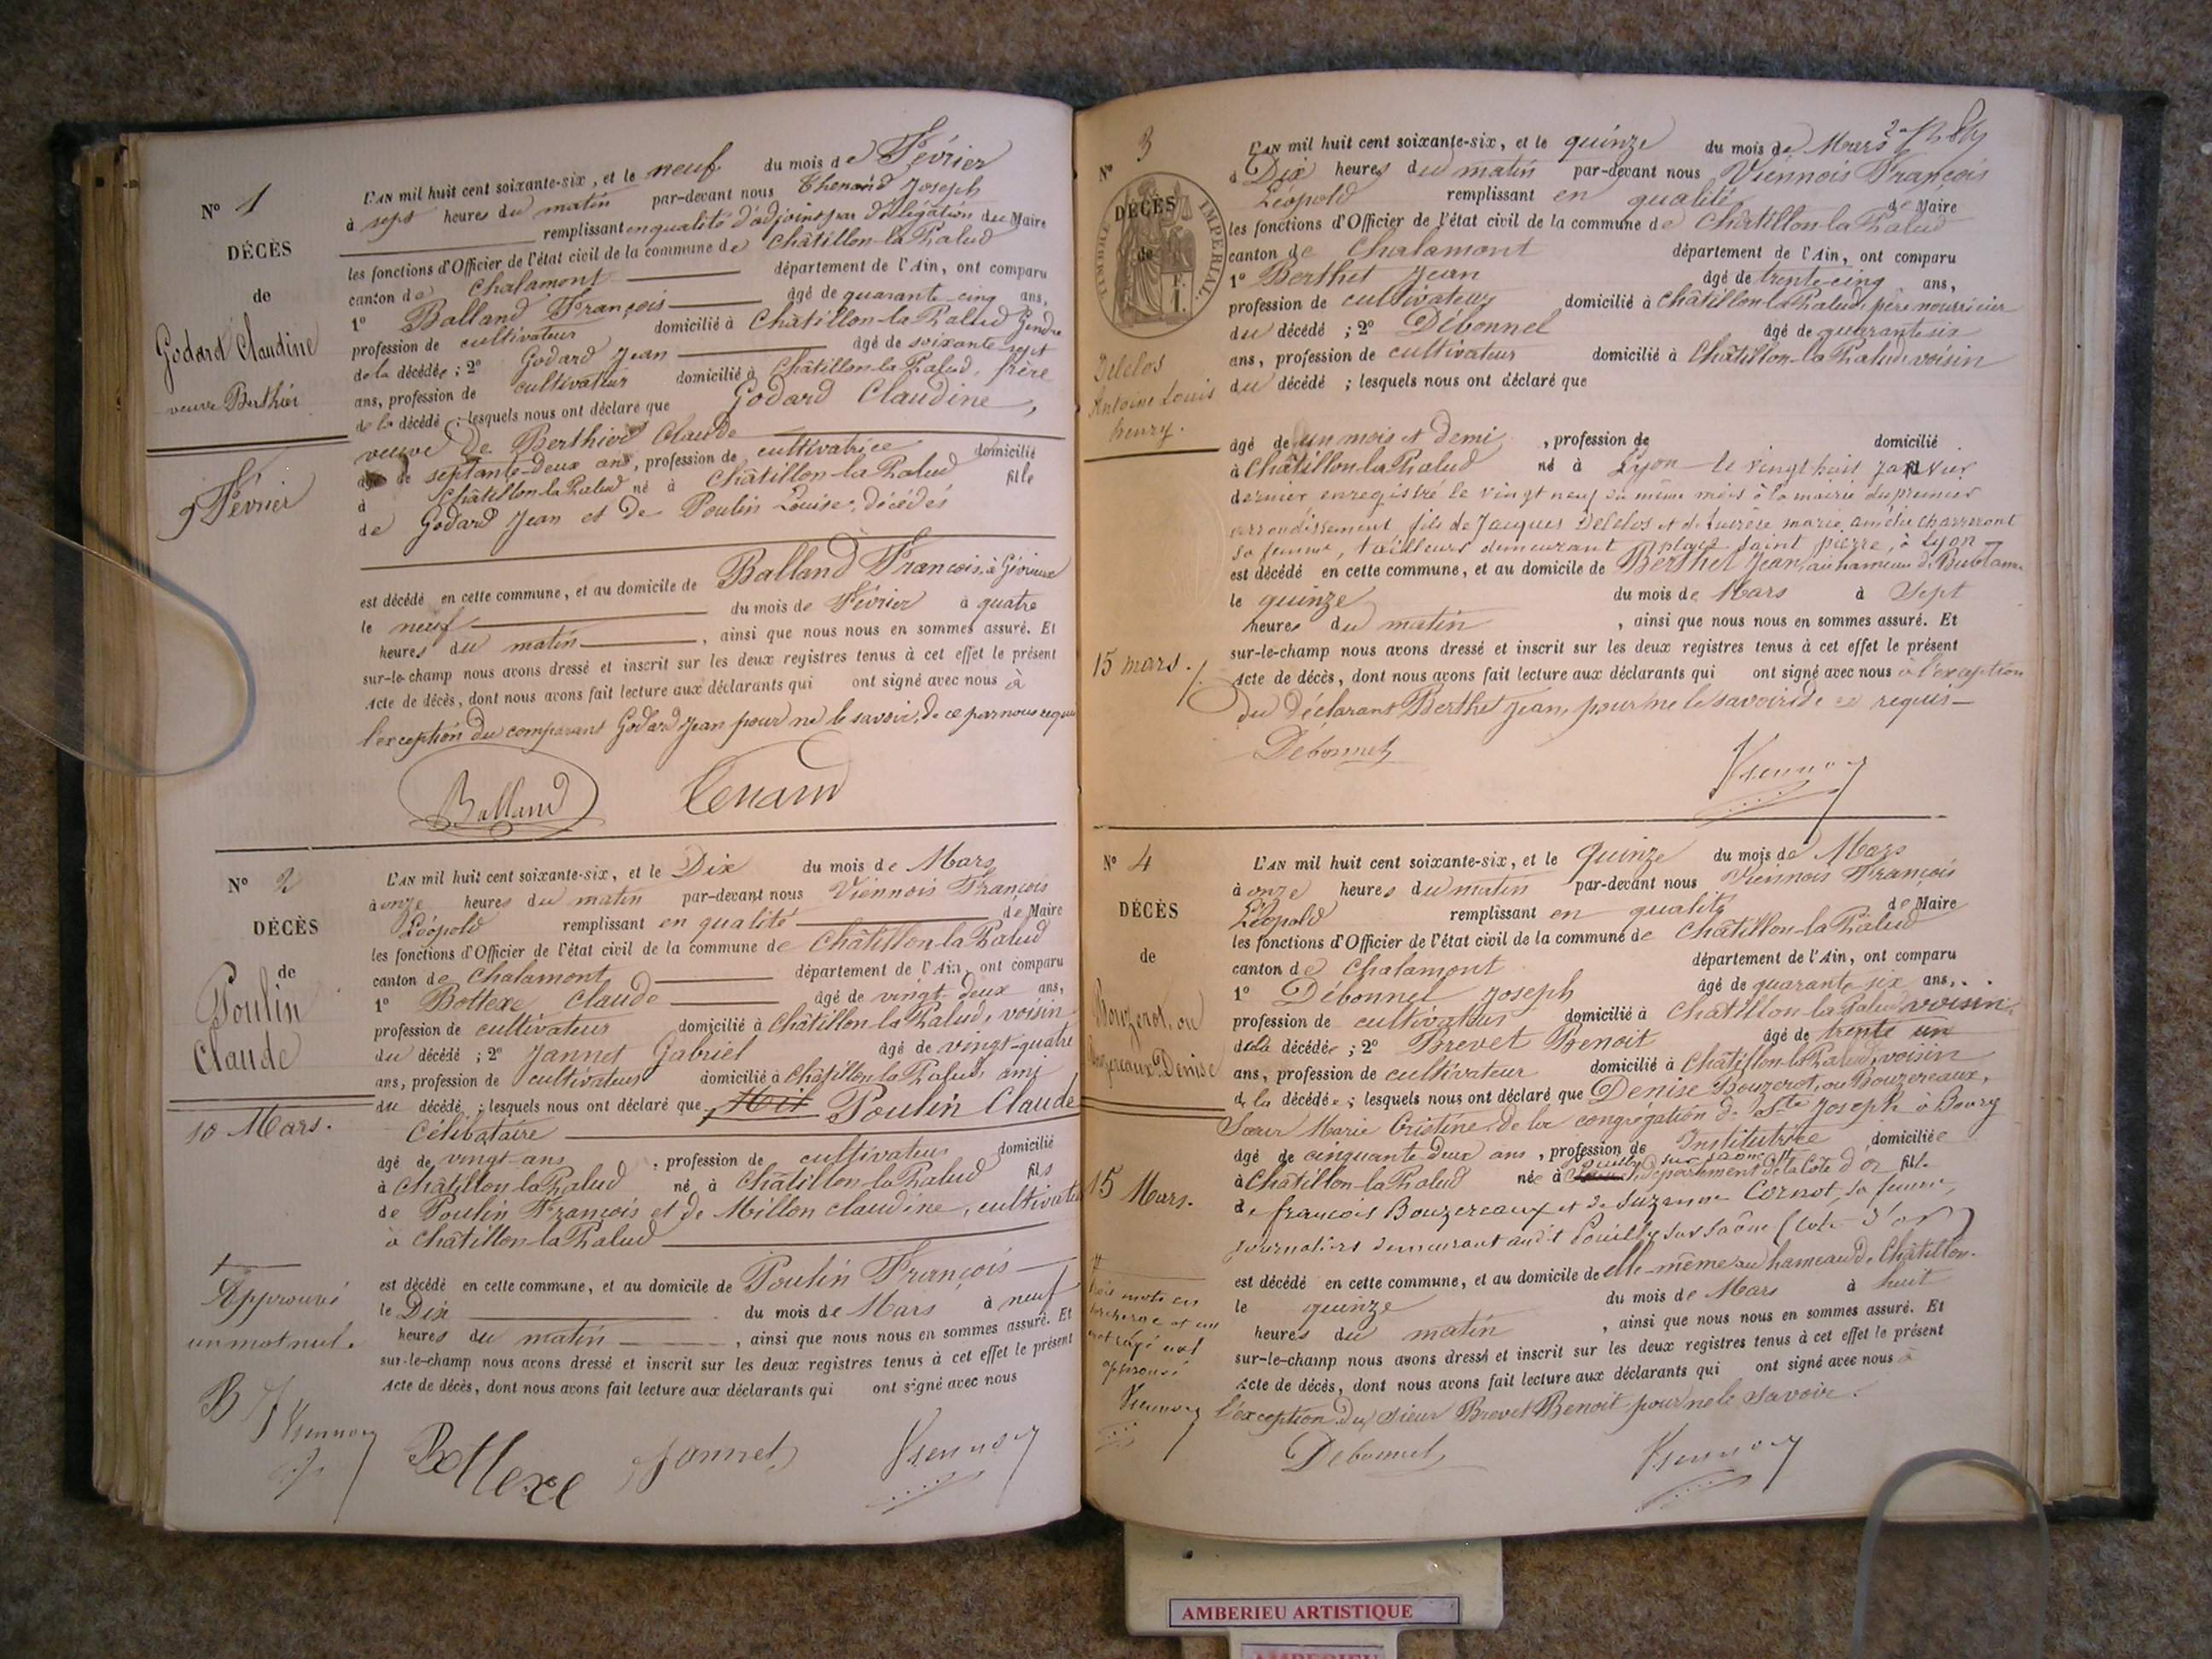 N° 1
DÉCÈS
de
Godard Claudine
veuve Berthier
9 Février
L'AN mil huit cent soixante-six, et le neuf du mois de Février
à sept heures du matin par-devant nous Thenard Joseph
remplissant en qualité d'adjoint par délégation du Maire
les fonctions d'Officier de l'état civil de la commune de Châtillon-la-Palud
canton de Chalamont département de l'Ain, ont comparu
1° Balland François âgé de quarante-cinq ans,
profession de cultivateur domicilié à Châtillon-la-Palud Gendre
de la décédée ; 2° Godard Jean âgé de soixante-sept
ans, profession de cultivateur domicilié à Châtillon-la-Palud, frère
de la décédé ; lesquels nous ont déclaré que Godard Claudine,
veuve de Berthier Claude
âgé de septante-deux ans, profession de cultivatrice domicilié
à Châtillon-la-Palud né à Châtillon-la-Palud fille
de Godard Jean et de Poulin Louise, décédés
est décédé en cette commune, et au domicile de Balland François, à Gévrieux
le neuf du mois de Février à quatre
heures du matin, ainsi que nous nous en sommes assuré. Et
sur-le-champ nous avons dressé et inscrit sur les deux registres tenus à cet effet le présent
Acte de décès, dont nous avons fait lecture aux déclarants qui ont signé avec nous à
l'exception du comparant Godard Jean pour ne le savoir, de ce par nous requis
Balland Tenard
N° 2
DÉCÈS
de
Poulin
Claude
10 Mars.
Approuvé
un mot nul.
B Viennois
L'AN mil huit cent soixante-six, et le Dix du mois de Mars
à onze heures du matin par-devant nous Viennois François
Léopold remplissant en qualité de Maire
les fonctions d'Officier de l'état civil de la commune de Châtillon-la-Palud
canton de Chalamont département de l'Ain, ont comparu
1° Bottexe Claude âgé de vingt-deux ans,
profession de cultivateur domicilié à Châtillon-la-Palud, voisin
du décédé ; 2° Jannet Gabriel âgé de vingt-quatre
ans, profession de cultivateur domicilié à Châtillon-la-Palud ami
du décédé ; lesquels nous ont déclaré que Poulin Claude
Célibataire
âgé de vingt ans, profession de cultivateur domicilié
à Châtillon-la-Palud né à Châtillon-la-Palud fils
de Poulin François et de Millon claudine, cultivateurs
à Châtillon-la-Palud
est décédé en cette commune, et au domicile de Poulin François
le Dix du mois de Mars à neuf
heures du matin, ainsi que nous nous en sommes assuré. Et
sur-le-champ nous avons dressé et inscrit sur les deux registres tenus à cet effet le présent
Acte de décès, dont nous avons fait lecture aux déclarants qui ont signé avec nous
Bottexe Jannet Viennois
N° 3
TIMBRE IMPÉRIAL
DÉCÈS
de
Delelos
Antoine Louis
henry.
15 mars.
L'AN mil huit cent soixante-six, et le quinze du mois de Mars
à Dix heures du matin par-devant nous Viennois François
Léopold remplissant en qualité de Maire
les fonctions d'Officier de l'état civil de la commune de Châtillon-la-Palud
canton de Chalamont département de l'Ain, ont comparu
1° Berthet Jean âgé de trente-cinq ans,
profession de cultivateur domicilié à Châtillon-la-Palud, père nourricier
du décédé ; 2° Débonnel âgé de quarante six
ans, profession de cultivateur domicilié à Châtillon-la-Palud, voisin
du décédé ; lesquels nous ont déclaré que
âgé de un mois et demi, profession de domicilié
à Châtillon-la-Palud né à Lyon le vingt huit janvier
dernier enregistré le vingt neuf du même mois à la mairie du premier
arrondissement, fils de Jacques Delelos et de marie amélie
sa femme, tailleurs demeurant place saint pierre, à Lyon
est décédé en cette commune, et au domicile de Berthet Jean, au hameau de Bublane
le quinze du mois de Mars à Sept
heures du matin, ainsi que nous nous en sommes assuré. Et
sur-le-champ nous avons dressé et inscrit sur les deux registres tenus à cet effet le présent
Acte de décès, dont nous avons fait lecture aux déclarants qui ont signé avec nous à l'exception
du déclarant Berthet Jean, pour ne le savoir de ce requis
Debonnel
Viennois
N° 4
DÉCÈS
de
Bouzerot, ou
Bouzereaux Denise
15 Mars.
trois mots en
surcharge et un
mot rayé nul
approuvé
Viennois
L'AN mil huit cent soixante-six, et le quinze du mois de Mars
à onze heures du matin par-devant nous Viennois François
Léopold remplissant en qualité de Maire
les fonctions d'Officier de l'état civil de la commune de Châtillon-la-Palud
canton de Chalamont département de l'Ain, ont comparu
1° Débonnel Joseph âgé de quarante six ans,
profession de cultivateur domicilié à Châtillon-la-Palud voisin
de la décédée ; 2° Brevet Benoit âgé de trente un
ans, profession de cultivateur domicilié à Châtillon-la-Palud, voisin
de la décédée ; lesquels nous ont déclaré que Denise Bouzerot, ou Bouzereaux,
Sœur Marie Cristine, de la congrégation de Ste Joseph à Bourg
âgé de cinquante deux ans, profession de Institutrice domiciliée
à Châtillon-la-Palud née à Pouilly sur saône département de la Côte d'or fille
de françois Bouzereaux et de Suzanne Cornot, sa femme,
journaliers demeurant audit Pouilly sur Saône (Côte-d'or)
est décédé en cette commune, et au domicile de elle-même au hameau de Châtillon.
le quinze du mois de Mars à huit
heures du matin, ainsi que nous nous en sommes assuré. Et
sur-le-champ nous avons dressé et inscrit sur les deux registres tenus à cet effet le présent
Acte de décès, dont nous avons fait lecture aux déclarants qui ont signé avec nous à
l'exception du sieur Brevet Benoit pour ne le savoir.
Debonnel Viennois
AMBERIEU ARTISTIQUE
AMBERIEU